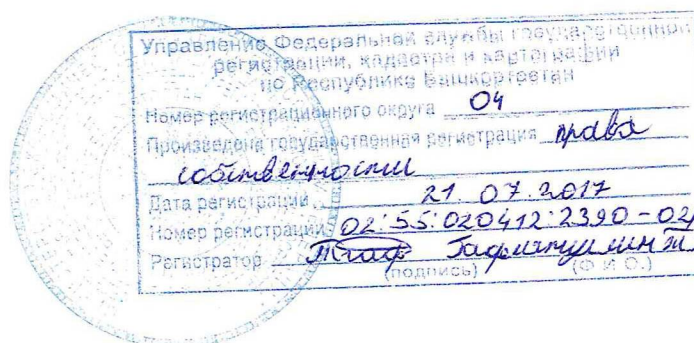 Управление Федеральной службы государственной
регистрации, кадастра и картографии
по Республике Башкортостан
Номер регистрационного округа 04
Произведена государственная регистрация права
собственности
Дата регистрации 21.07.2017
Номер регистрации 02:55:020412:2390-02/
Регистратор
(подпись) (Ф.И.О.)